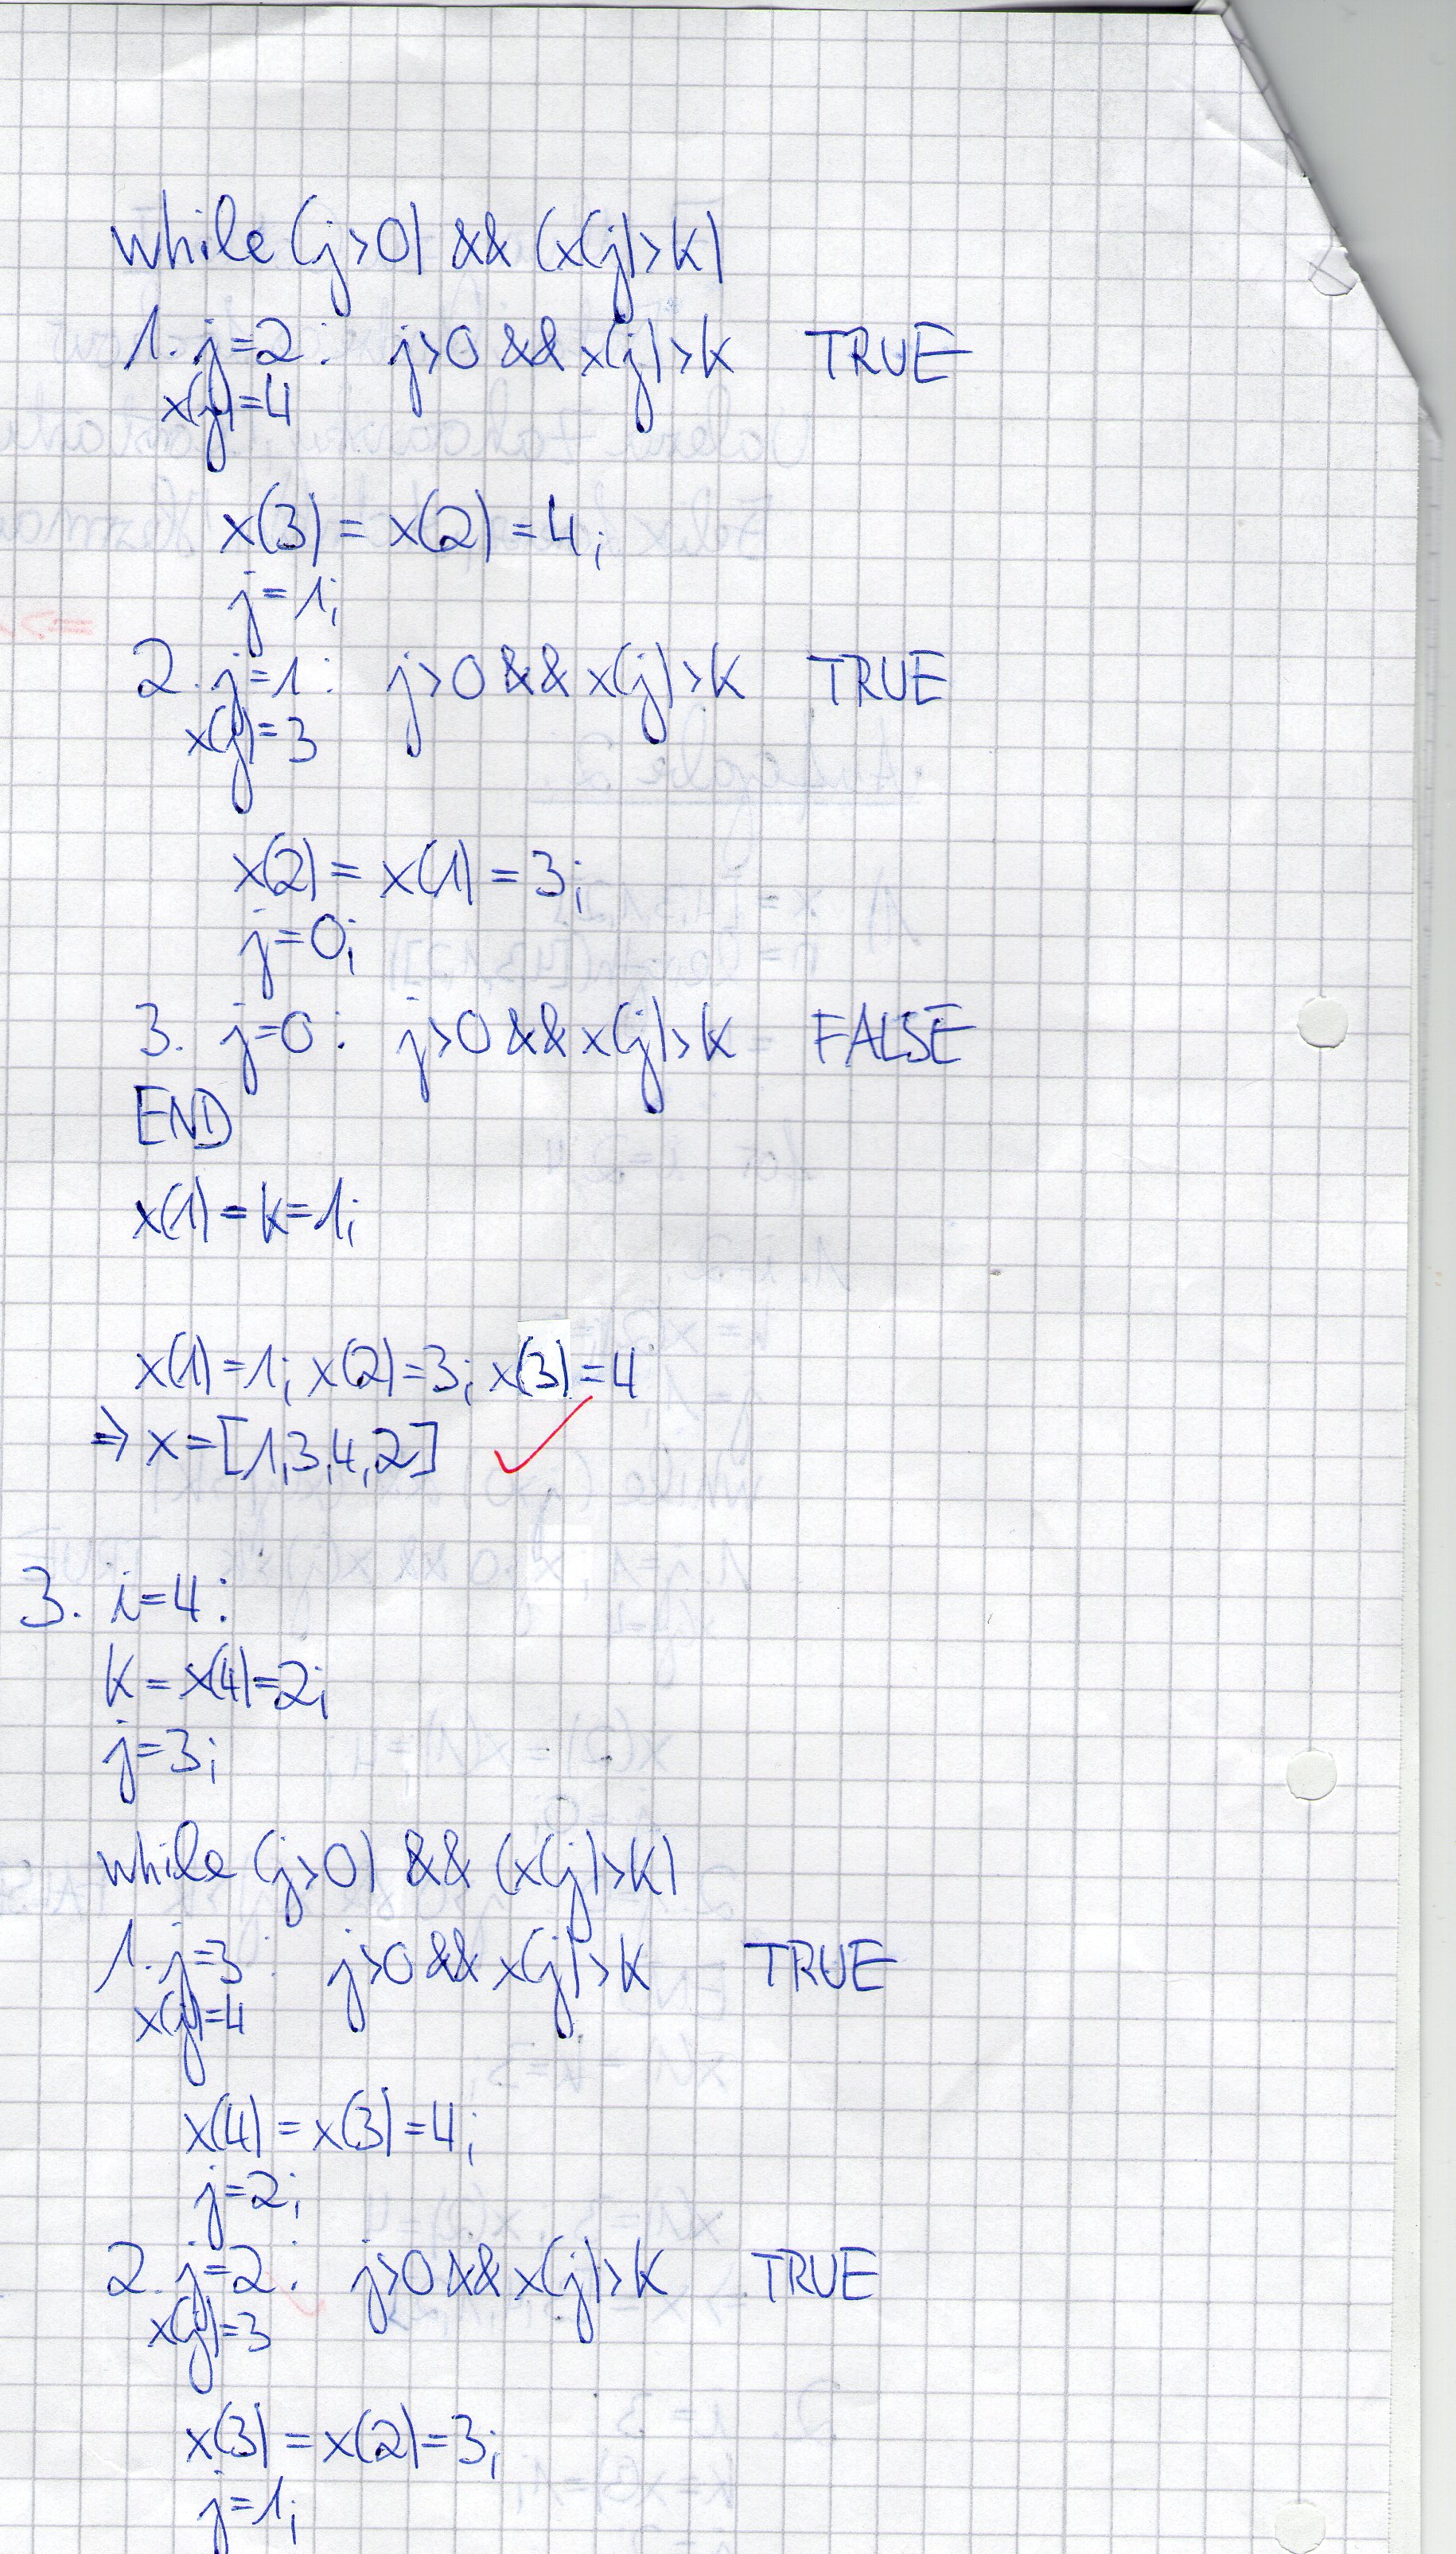 while (j>0) && (x(j)>k)
1. j=2: j>0 && x(j)>k TRUE
x(j)=4
x(3) = x(2) = 4;
j=1;
2. j=1: j>0 && x(j)>k TRUE
x(j)=3
x(2) = x(1) = 3;
j=0;
3. j=0: j>0 && x(j)>k FALSE
END
x(1)=k=1;
x(1)=1; x(2)=3; x(3)=4
⇒ x=[1,3,4,2] ✓
3. i=4:
k=x(4)=2;
j=3;
while (j>0) && (x(j)>k)
1. j=3: j>0 && x(j)>k TRUE
x(j)=4
x(4) = x(3) = 4;
j=2;
2. j=2: j>0 && x(j)>k TRUE
x(j)=3
x(3) = x(2) = 3;
j=1;